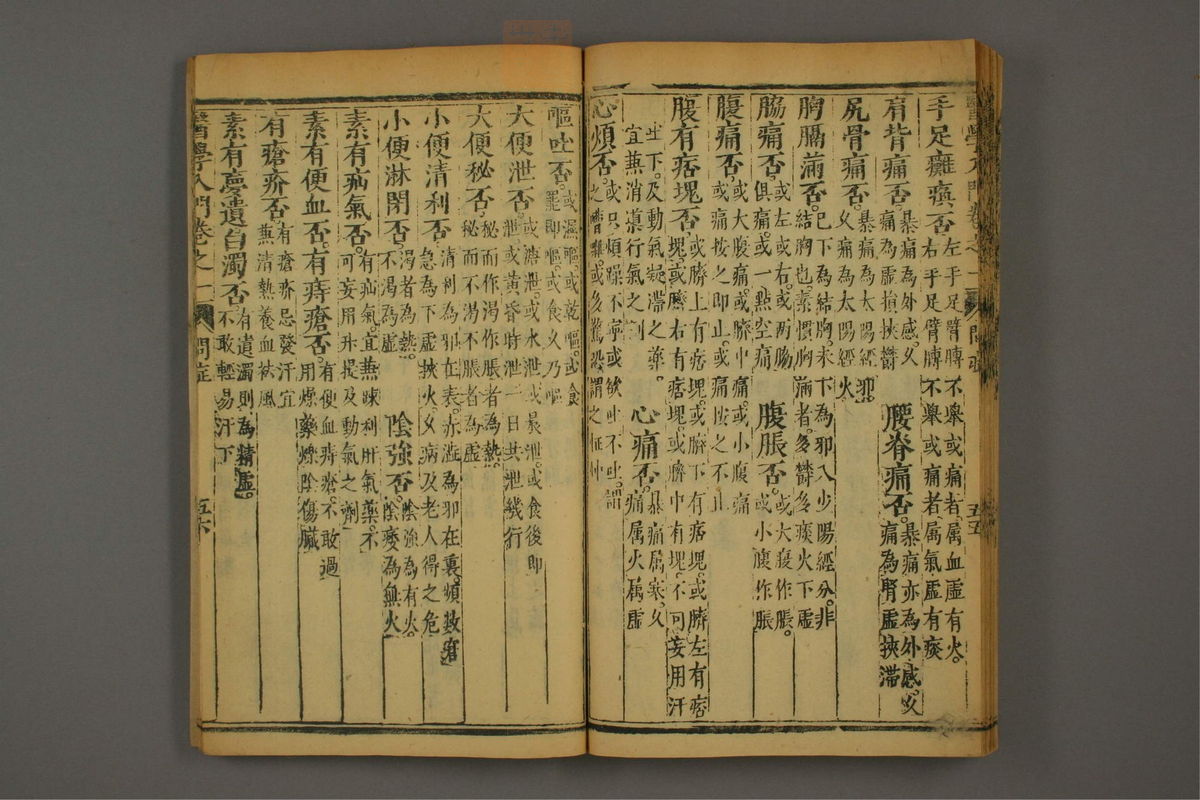 手足癱瘓否左手足臂膊不舉或痛者属血虛有火。右手足臂膊不舉或痛者属氣虛有痰
肩背痛否。暴痛為外感。久痛為虛損挾鬱 腰脊痛否。暴痛亦為外感。久痛為腎虛挾滯
尻骨痛否。暴痛為太陽經邪。久痛為太陽經火
胸膈滿否。已下為結胸。未下為邪入少陽經分。非結胸也。素慣胸滿者。多鬱多痰火下虛
脇痛否。或左或右。或兩脇俱痛。或一點空痛 腹脹否。或大腹作脹。或小腹作脹
腹痛否。或大腹痛。或臍中痛。或小腹痛或痛按之即止。或痛按之不止
腹有痞塊否。或臍上有痞塊。或臍下有痞塊。或臍左有痞塊。或臍右有痞塊。或臍中有塊。不可妄用汗
吐下。及動氣凝滯之藥。宜兼消導行氣之剤 心痛否。暴痛属寒。久痛属火属虛
心煩否。或只煩躁不寧或欲吐不吐。謂之嘈雜。或多驚恐謂之怔忡
嘔吐否。或濕嘔。或乾嘔。或食罷即嘔。或食久乃嘔
大便泄否。或溏泄。或水泄。或晨泄。或食後即泄。或黃昏時泄一日共泄幾行
大便秘否。秘而作渴作脹者為熱。秘而不渴不脹者為虛
小便清利否。清利為邪在表。赤澁為邪在裏。頻数窘急為下虛挾火。久病及老人得之危
小便淋閉否。渴者為熱。不渴為虛 陰強否。陰強為有火。陰痿為無火
素有疝氣否。有疝氣。宜兼踈利肝氣藥。不可妄用升提及動氣之劑
素有便血否。有痔瘡否。有便血痔瘡。不敢過用燥藥爍陰傷臟
有瘡疥否。有瘡疥忌發汗宜兼清熱養血祛風
素有夢遺白濁否有遺濁則為精虛。不敢輕易汗下
醫學入門卷之一 問症 五六